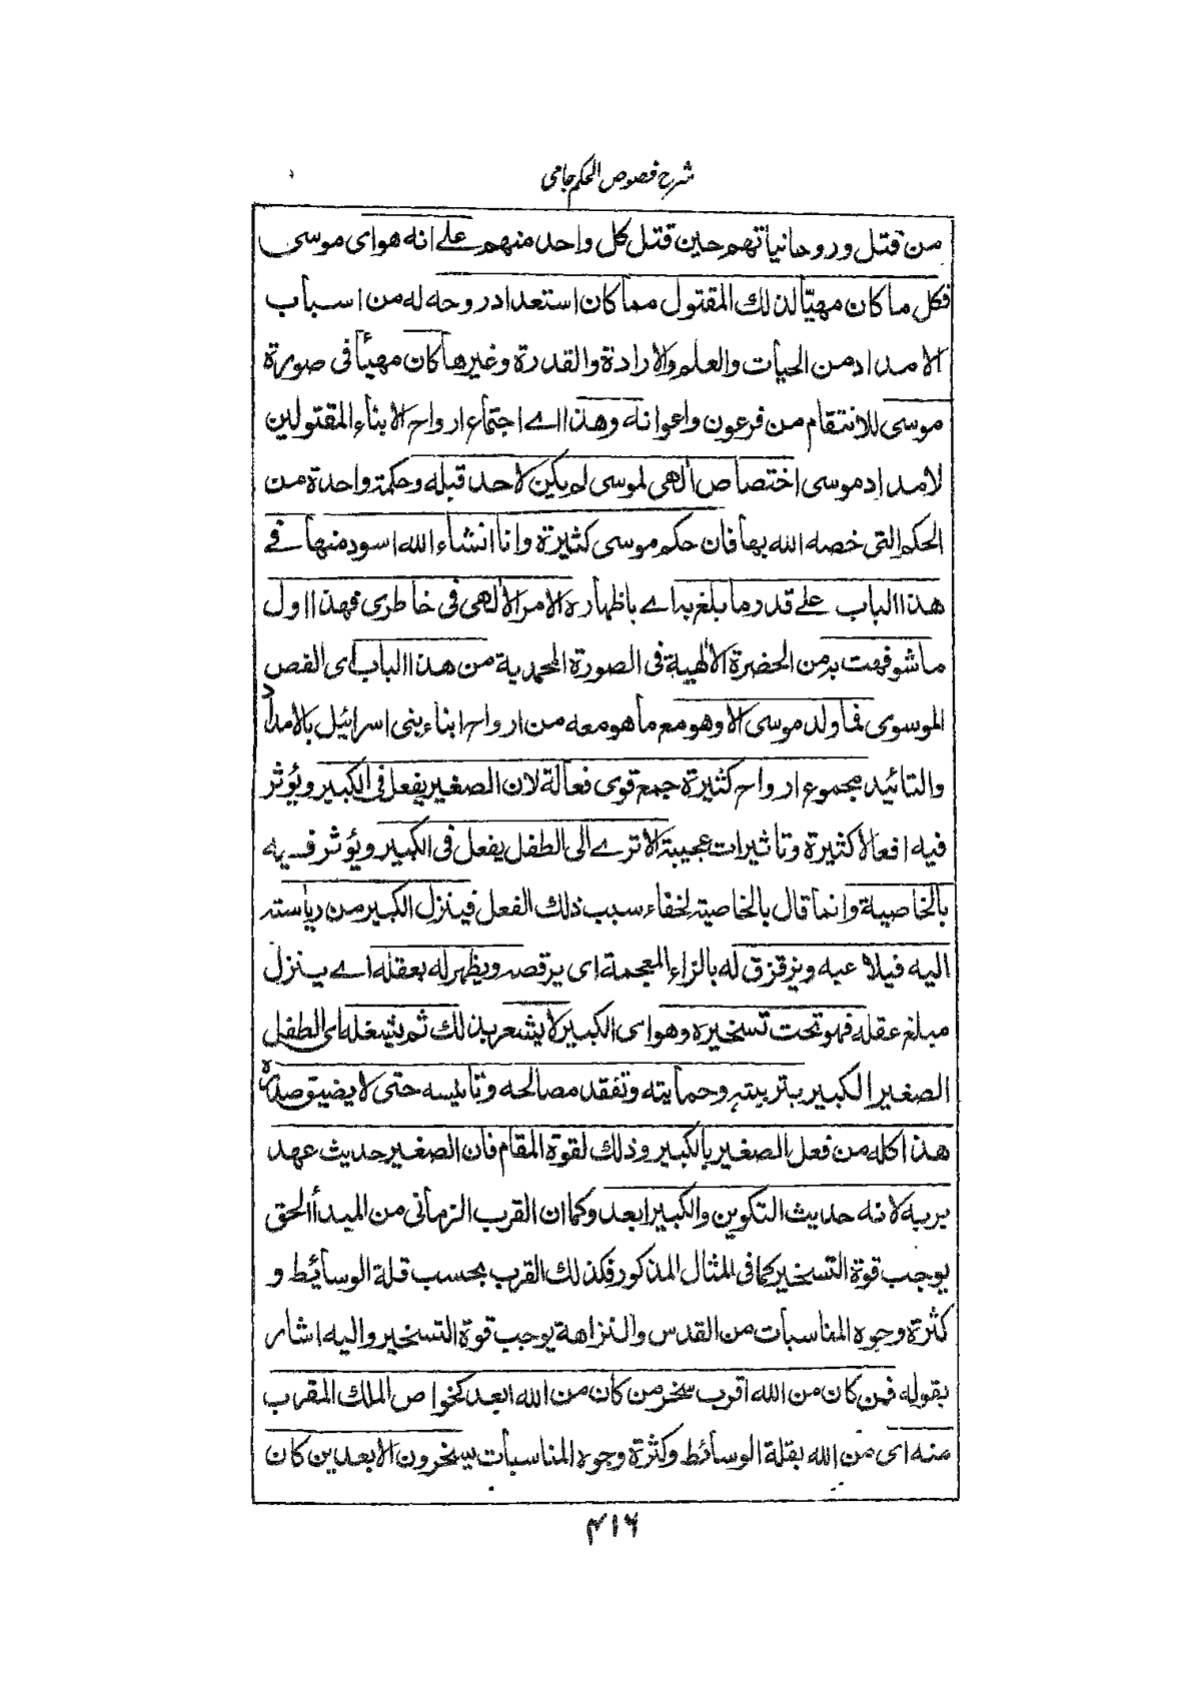 شرح فصوص الحكم جامى
من قتل وروحانياتهم حين قتل كل واحد منهم على انه هو اى موسى
فكل ما كان مهيّا لذلك المقتول مما كان استعداد روحه له من اسباب
الامداد من الحيات والعلم والارادة والقدرة وغيرها كان مهيأ فى صورة
موسى للانتقام من فرعون واعوانه وهذا اے اجتماع ارواح الابناء المقتولين
لامداد موسى اختصاص الٰهى لموسى لم يكن لاحد قبله وحكمة واحدة من
الحكم التى خصه الله بها فان حكم موسى كثيرة وانا انشاء الله اسرد منها فے
هذا الباب على قدر ما يلغ به اے باظهاره الامر الالٰهى فى خاطرى فهذا اول
ما شوفهت به من الحضرة الالٰهية فى الصورة المحمدية من هذا الباب اى الفص
الموسوى فما ولد موسى الا وهو مع ما هو معه من ارواح ابناء بنى اسرائيل بالامداد
والتائيد مجموع ارواح كثيرة جمع قوى فعالة لان الصغير يفعل فى الكبير ويؤثر
فيه افعالا كثيرة وتاثيرات عجيبة الا ترے الى الطفل يفعل فى الكبير ويؤثر فيه
بالخاصية وانما قال بالخاصية لخفاء سبب ذلك الفعل فينزل الكبير من رياسته
اليه فيلاعبه ويزقزق له بالزاء المعجمة اى يرقصه ويظهر له بعقله اے ينزل
مبلغ عقله فهو تحت تسخيره وهو اى الكبير لا يشعر بذلك ثم يشغله اى الطفل
الصغير الكبير بتربيته وحمايته وتفقد مصالحه وتانيسه حتى لا يضيق صدره
هذا كله من فعل الصغير بالكبير وذلك لقوة المقام فان الصغير حديث عهد
بربه لانه حديث التكوين والكبير ابعد وكما ان القرب الزمانى من المبدأ الحق
يوجب قوة التسخير كما فى المثال المذكور فكذلك القرب بحسب قلة الوسائط و
كثرة وجوه المناسبات من القدس والنزاهة يوجب قوة التسخير واليه اشار
بقوله فمن كان من الله اقرب سخر من كان من الله ابعد كخواص الملك المقرب
منه اى من الله بقلة الوسائط وكثرة وجوه المناسبات يسخرون الابعدين كان
۴۱۶